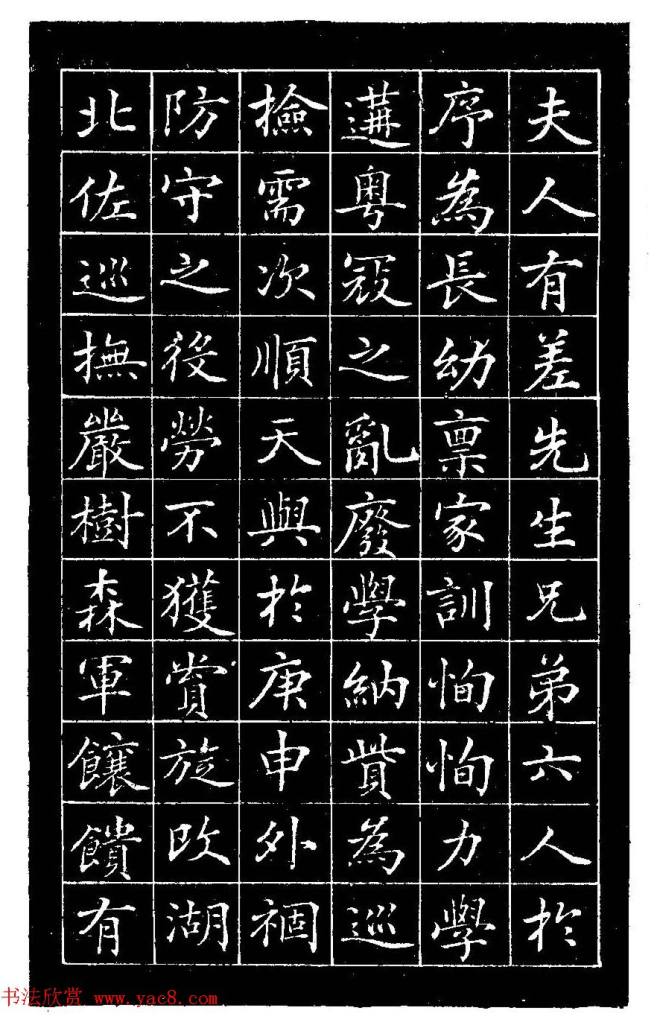 夫人有差先生兄弟六人於
序為長幼稟家訓恂恂力學
遘粵冦之亂廢學納貲為巡
撿需次順天與於庚申外裍
防守之後勞不獲賞旋改湖
北佐巡撫嚴樹森軍饟饋有
书法欣赏 www.yac8.com